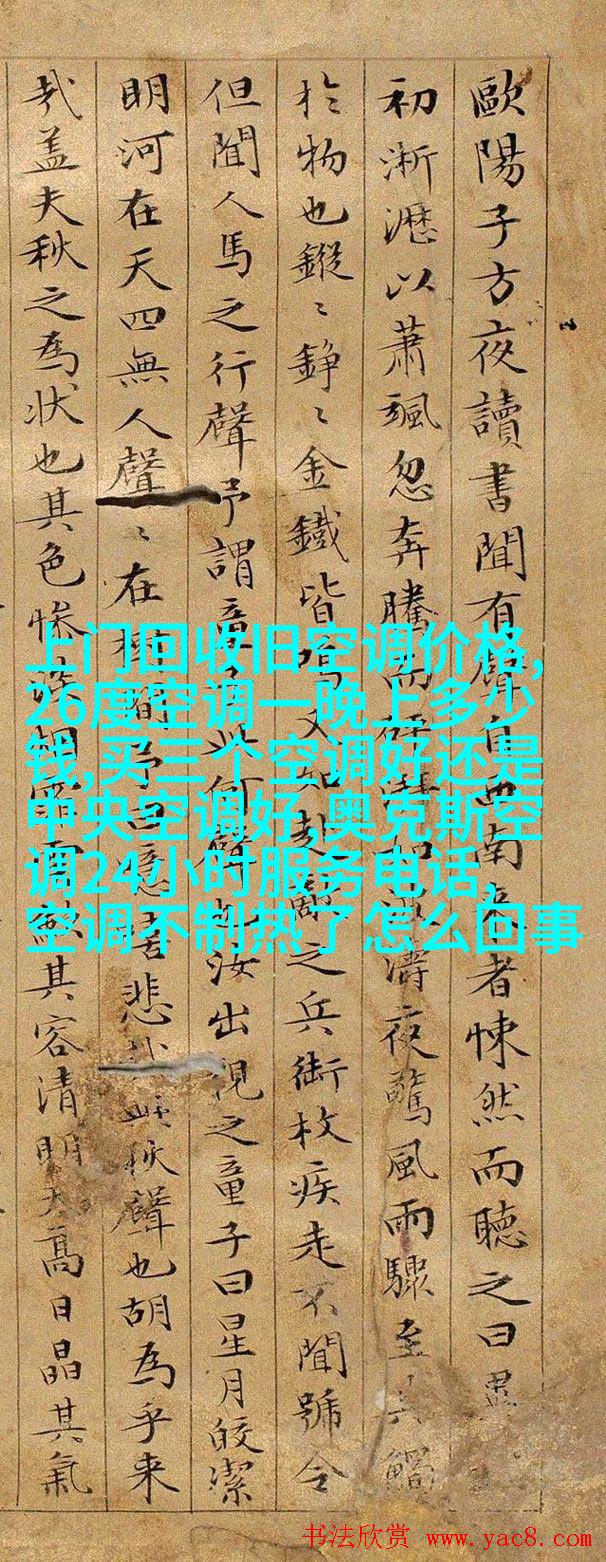 歐陽子方夜讀書聞有聲自西南來者悚然而聽之曰異
初淅瀝以蕭颯忽奔騰而砰湃如波濤夜驚風雨驟至其觸
於物也鏦〻錚〻金鐵皆鳴又如赴敵之兵銜枚疾走不聞號令
但聞人馬之行聲予謂童子此何聲也汝出視之童子曰星月皎潔
明河在天四無人聲〻在樹間予曰噫嘻悲哉此秋聲也胡為乎來
哉盖夫秋之為狀也其色慘淡烟霏雲斂其容清明天高日晶其氣
上门回收旧空调价格,
26度空调一晚上多少
钱,买三个空调好还是
中央空调好,奥克斯空
调24小时服务电话,
空调不制热了怎么回事
书法欣赏 www.yac8.com